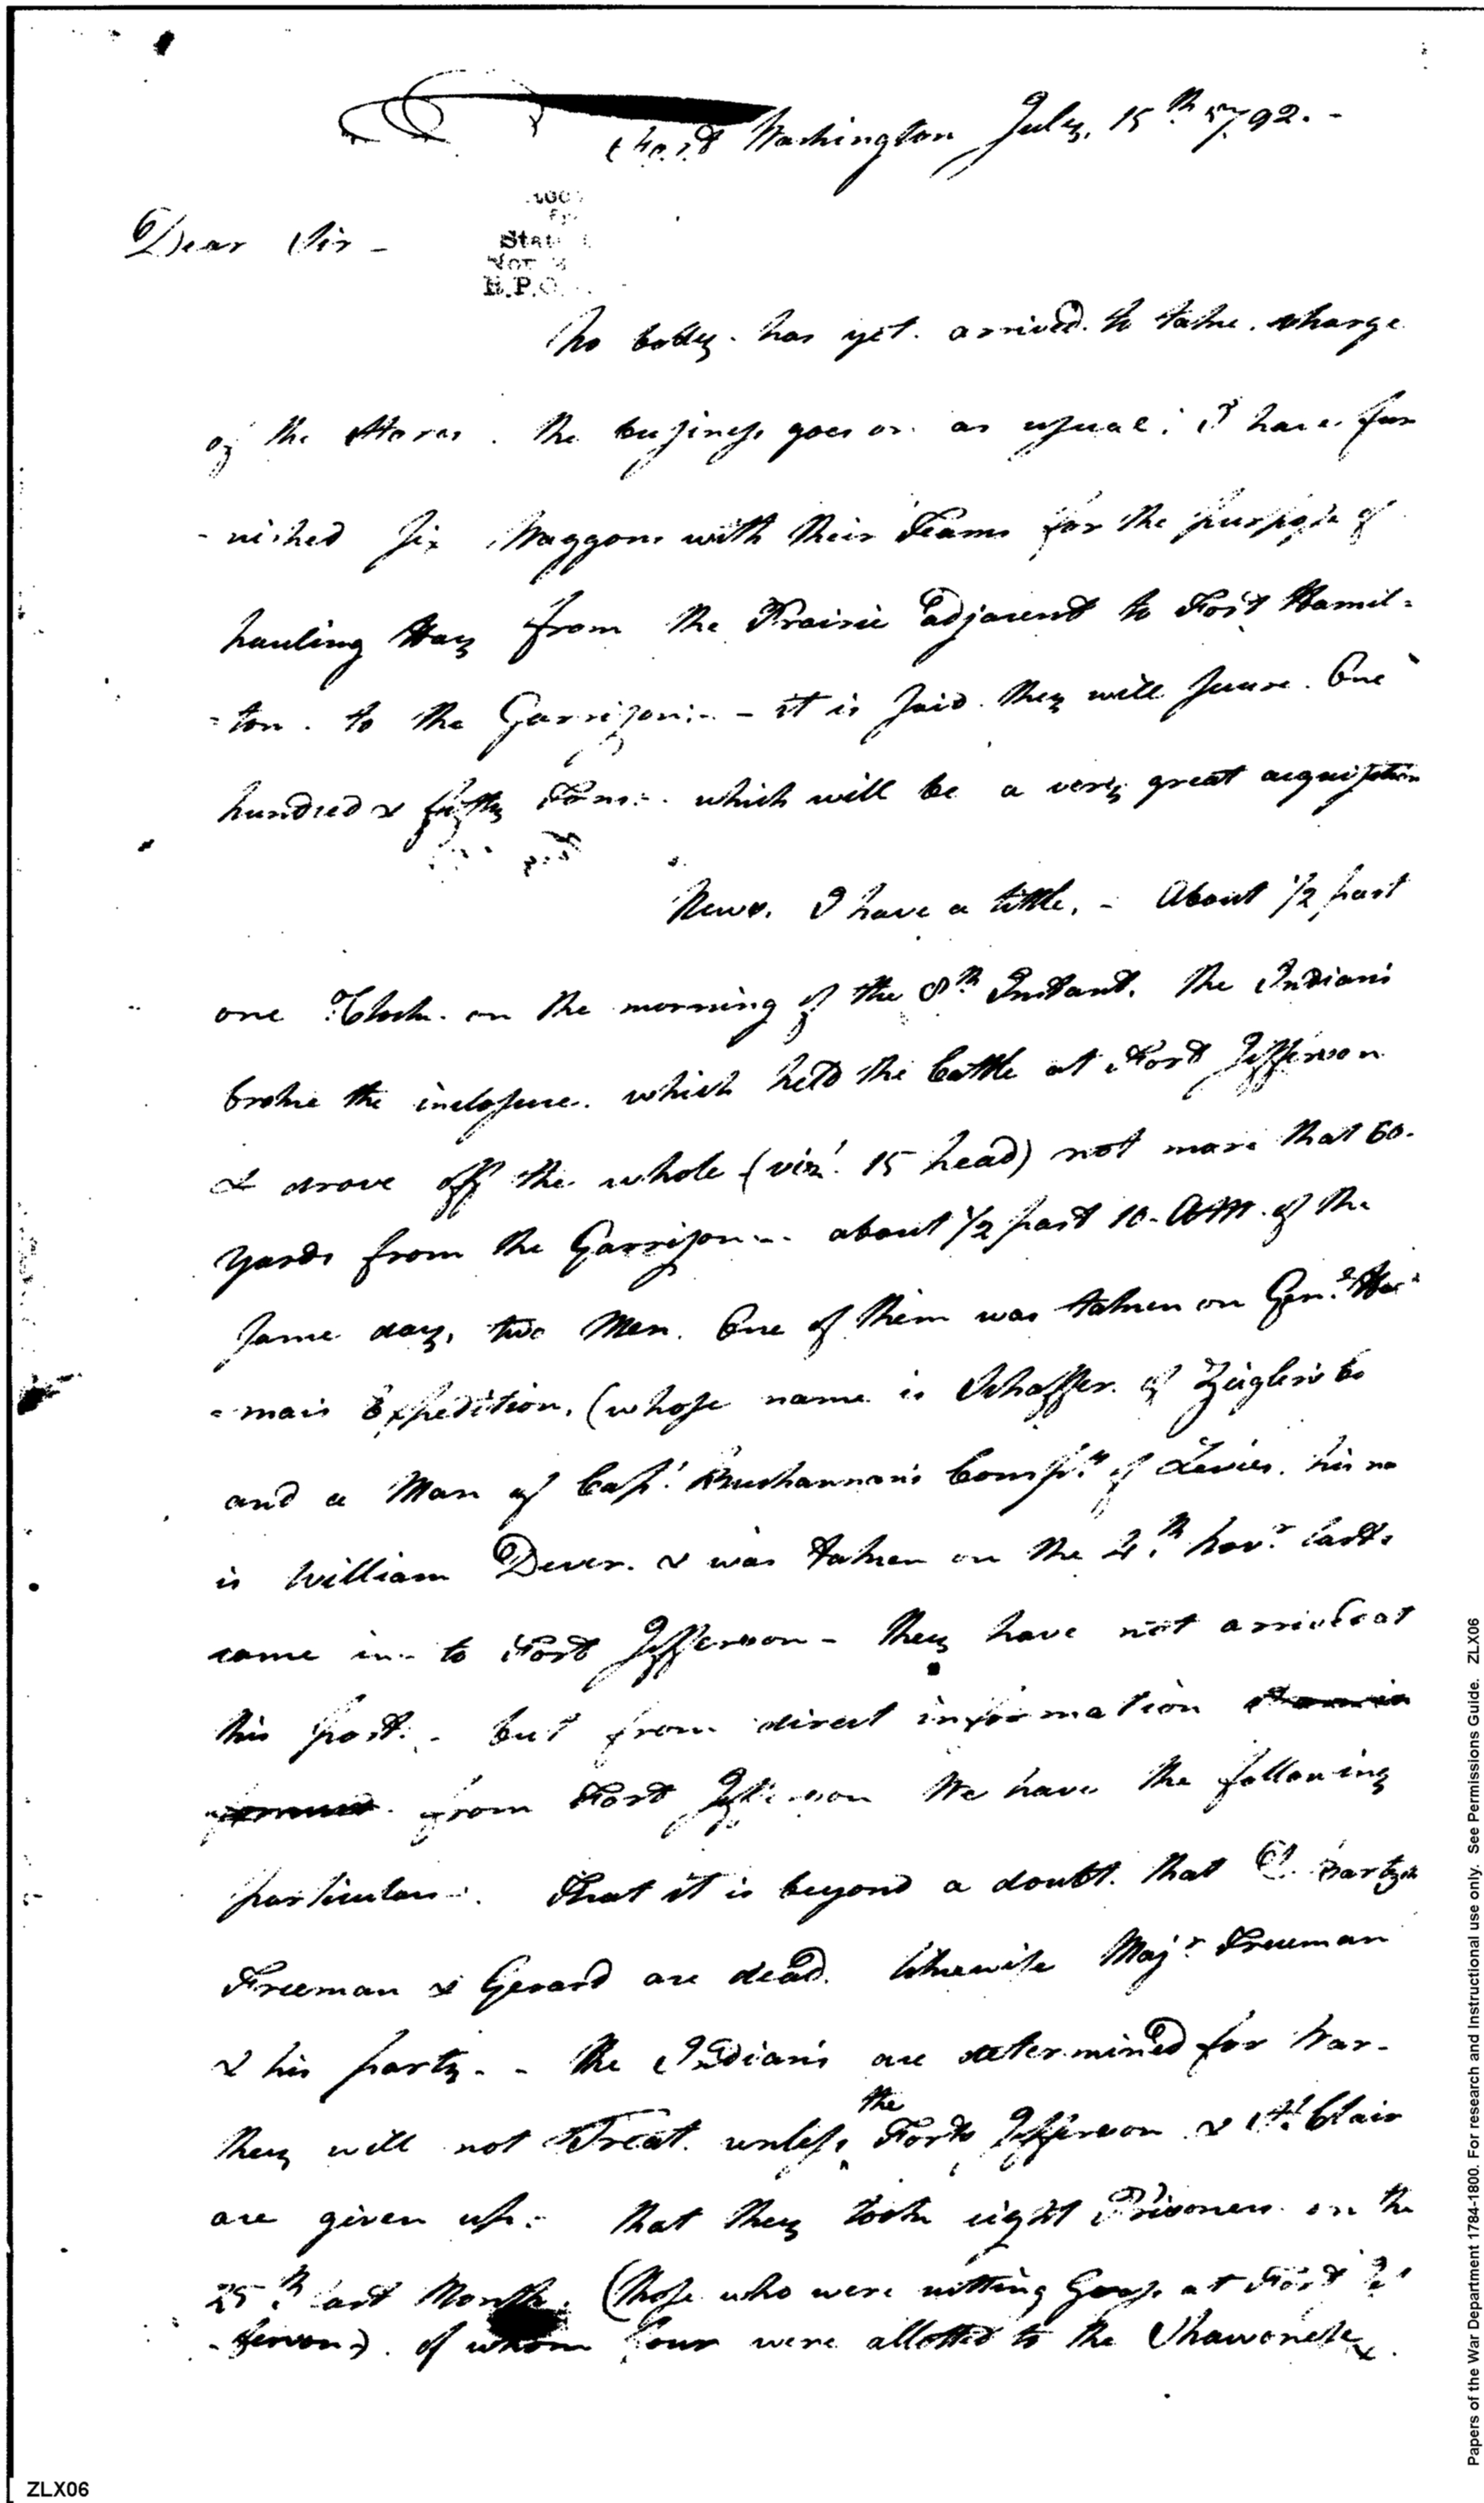 Fort Washington July, 15th 1792. -
Dear Sir -
No body has yet arrived to take charge
of the Stores. the business goes on as usual; I have fur
- nished six Waggons with their Teams for the purpose of
hauling Hay from the Prairie adjacent to Fort Hamil=
=ton. to the Garrison:- - it is said they will secure One
hundred & fifty Tons:- which will be a very great acquisition
News. I have a little, - About 1/2 past
one OClock on the morning of the 8th Instant. the Indians
broke the inclosure which held the Cattle at Fort Jefferson
& drove off the whole (vizt. 15 head) not more that 60.
yards from the Garrison - about 1/2 past 10. AM. of the
same day, two Men. One of them was taken on Genl Har=
=mars Expedition, (whose name is Schaffer of Zieglers Co
and a Man of Capt. Buchannan's Compy. of Levies. his na
is William Dever. & was taken on the 4th. Novr last.
came in - to Fort Jefferson - they have not arrived at
this post. - but from direct information
from Fort Jefferson We have the following
particulars:. That it is beyond a doubt. that
Freeman & Gerard are dead. likewise Majr. Trueman
& his party. - the Indians are determined for War -
they will not Treat. unless the Forts Jefferson & St. Clair
are given up:- that they took eight Prisoners on the
25th. last Month. (those who were cutting Grass at Fort Jef
- ferson). of whom four were allotted to the Shawonese &.
Papers of the War Department 1784-1800. For research and Instructional use only. See Permissions Guide. ZLX06
ZLX06